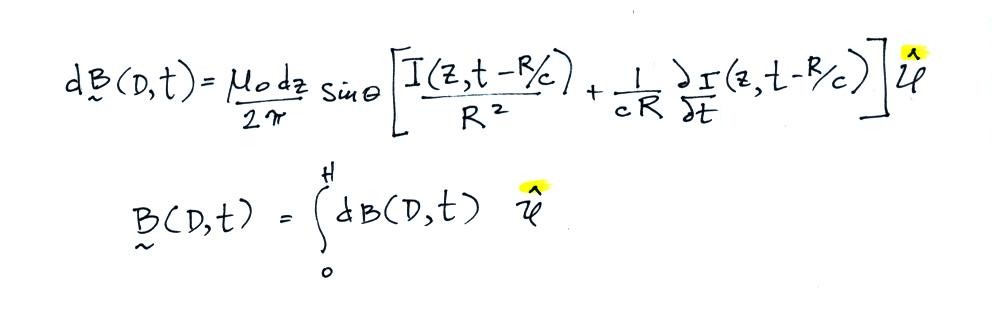 dB̰(D,t) = μ₀dz/2π sinθ [I(z,t-R/c)/R² + 1/cR ∂I/∂t(z,t-R/c)] φ̂
B̰(D,t) = ∫₀ᴴ dB(D,t) φ̂